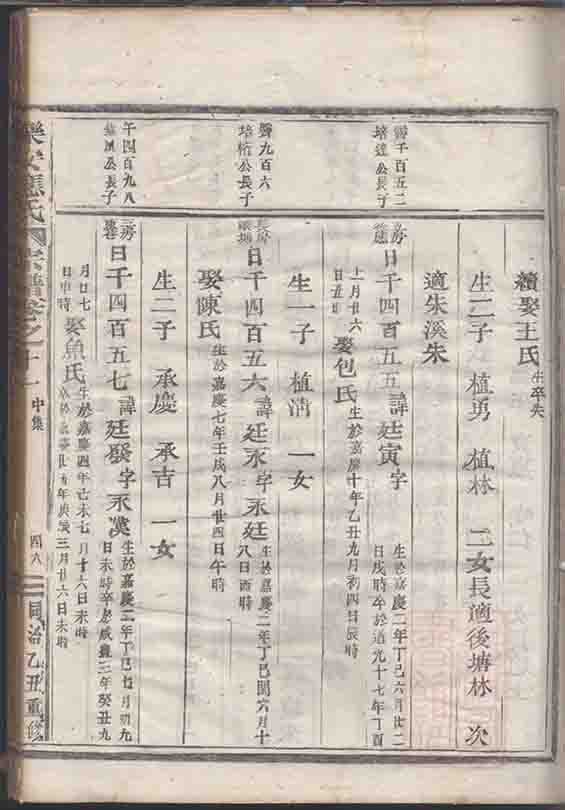 續娶王氏 生卒失
生二子 植勇 植林 二女長適後塘林 次
適朱溪朱
千百五二
培達公長子
房
日千四百五五 諱廷寅 字
生於嘉慶二年丁巳六月廿二
日戌時卒於道光十七年丁酉
十一月廿六
日丑時
娶包氏 生於嘉慶十年乙丑九月初四日辰時
生一子 植清 一女
九百六
培桁公長子
長房
日千四百五六 諱廷永 字永廷
生於嘉慶二年丁巳閏六月十
八日酉時
娶陳氏 生於嘉慶七年壬戌八月廿四日午時
生二子 承慶 承吉 一女
午四百九八
公長子
三房
日千四百五七 諱廷 字永
生於嘉慶二年丁巳 月初九
日未時卒於咸豐三年癸丑九
月廿七
日申時
娶魚氏
生於嘉慶四年己未七月十六日未時
卒於 年庚 三月廿六日未時
氏宗譜卷之十一 中集 四六 同治乙丑重修